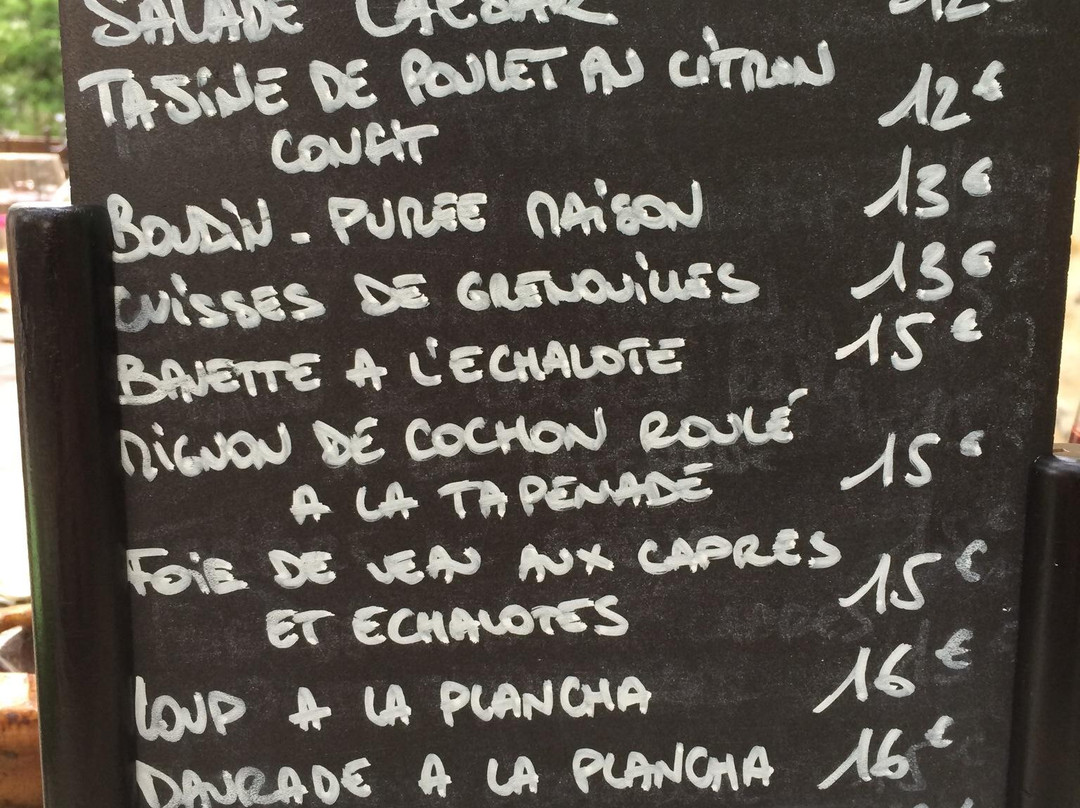 SALADE CAESAR 12€
TAJINE DE POULET AU CITRON 12€
CONFIT
BOUDIN - PUREE MAISON 13€
CUISSES DE GRENOUILLES 13€
BAVETTE A L'ECHALOTE 15€
MIGNON DE COCHON ROULÉ
A LA TAPENADE 15€
FOIE DE VEAU AUX CAPRES
ET ECHALOTES 15€
LOUP A LA PLANCHA 16€
DAURADE A LA PLANCHA 16€